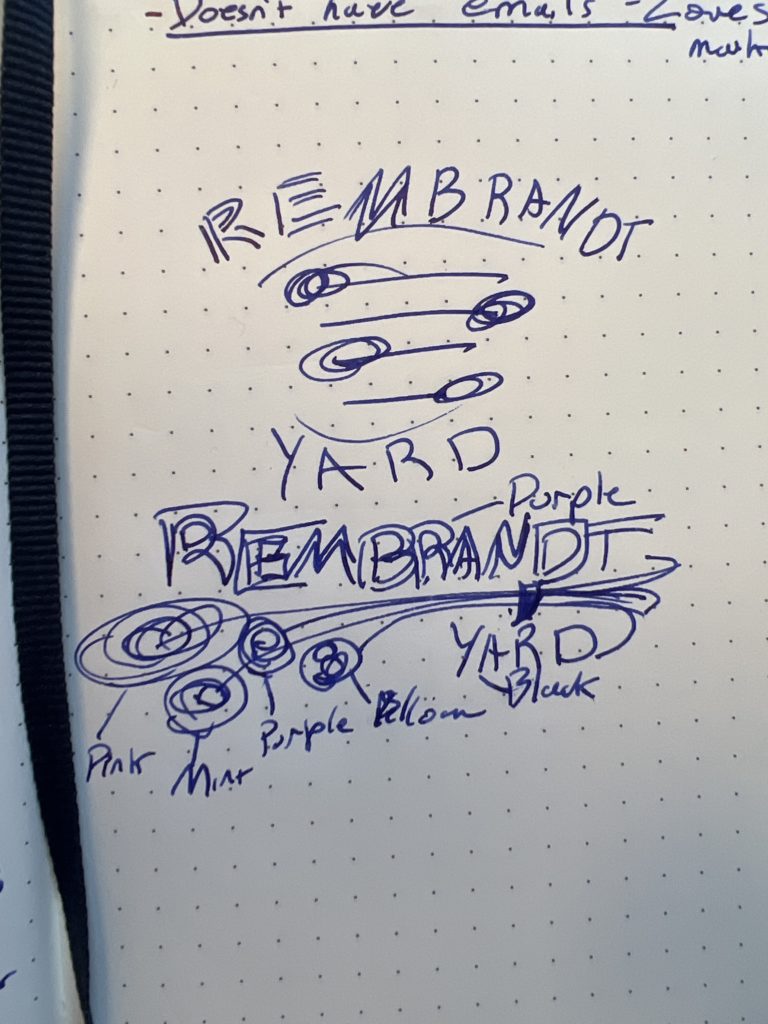 - Doesn't have emails - Loves
REMBRANDT
YARD
Purple
REMBRANDT
YARD
Black
Purple
Pink
Mint